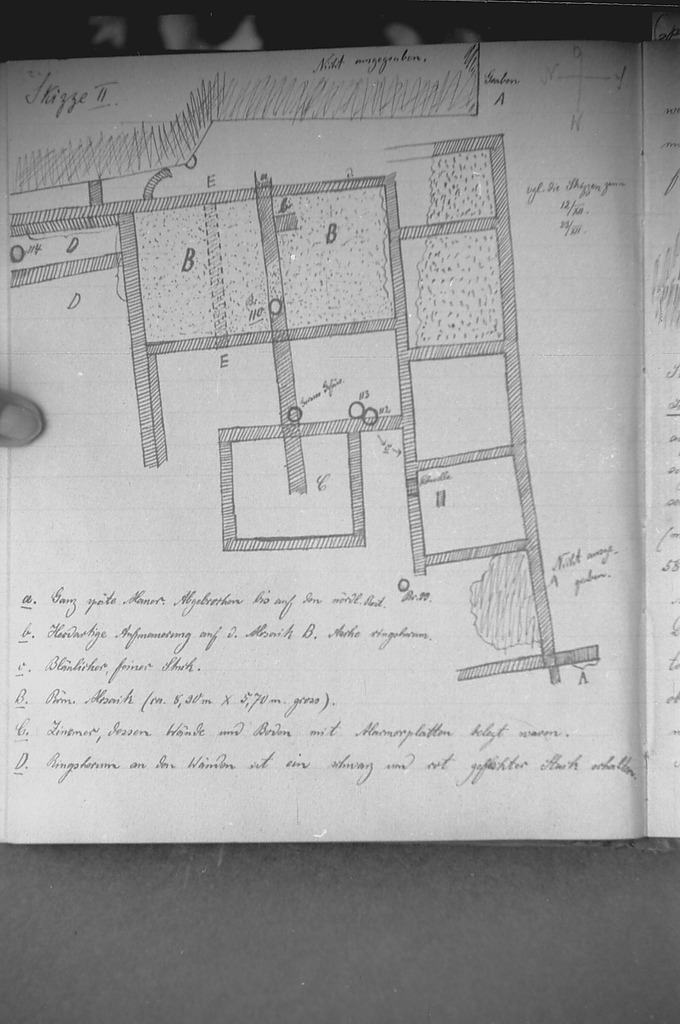 Skizze II.
Nicht ausgegraben.
Graben
A
O
N
S
W
vgl. die Skizzen zum
12/XII.
23/XII.
E
a
B
b.
B
D
114
D
Br.
110
E
113
112
C
Schwelle
Nicht ausge-
graben.
A
Br. 99.
A
a. Ganz späte Mauer. Abgebrochen bis auf den nördl. Rest.
b. Herdartige Aufmauerung auf d. Mosaik B. Asche ringsherum.
c. Bläulicher, feiner Stuck.
B. Röm. Mosaik (ca. 8,30 m X 5,70 m. gross).
C. Zimmer, dessen Wände und Boden mit Marmorplatten belegt waren.
D. Ringsherum an den Wänden ist ein schwarz und rot gefärbter Stuck erhalten.